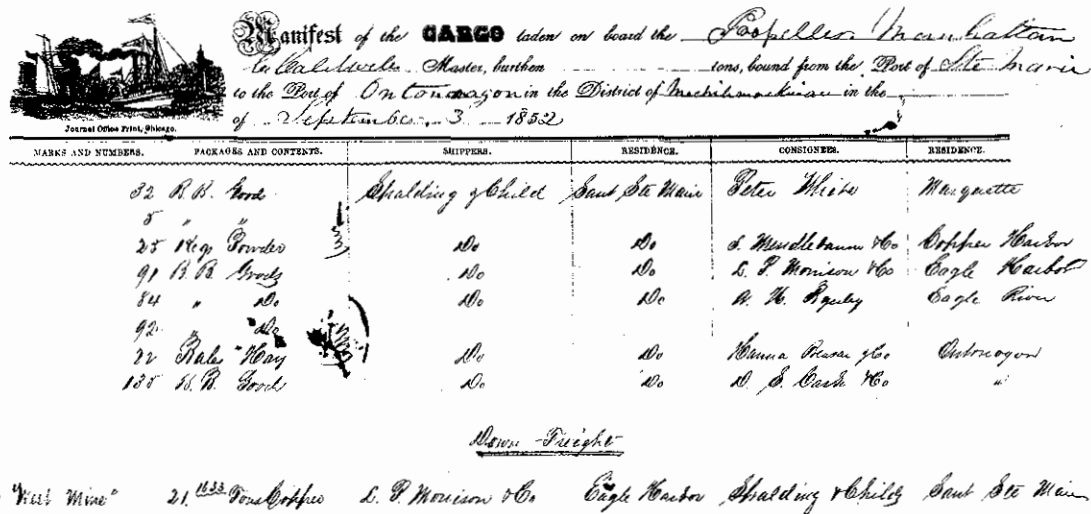 Manifest of the CARGO laden on board the Propeller Manhattan
Caldwell Master, burthen tons, bound from the Port of Ste Marie
to the Port of Ontonagon in the District of Michilimackinac in the
of September 3 1852
Journal Office Print, Chicago.
MARKS AND NUMBERS. PACKAGES AND CONTENTS. SHIPPERS. RESIDENCE. CONSIGNEES. RESIDENCE.
32 B. B. Goods Spalding & Child Saut Ste Marie Peter White Marquette
5 " "
25 Kegs Powder Do Do S. Mendlebaum & Co Copper Harbor
91 B B Goods Do Do L. P. Morrison & Co Eagle Harbor
84 " Do Do Do A. H. Eagle River
92 " Do
22 Bales Hay Do Do Hanna & Co Ontonagon
135 B. B. Goods Do Do D. S. Cash & Co "
Down Freight
Mine" 21 1633 Tons Copper L. P. Morrison & Co Eagle Harbor Spalding & Childs Saut Ste Marie